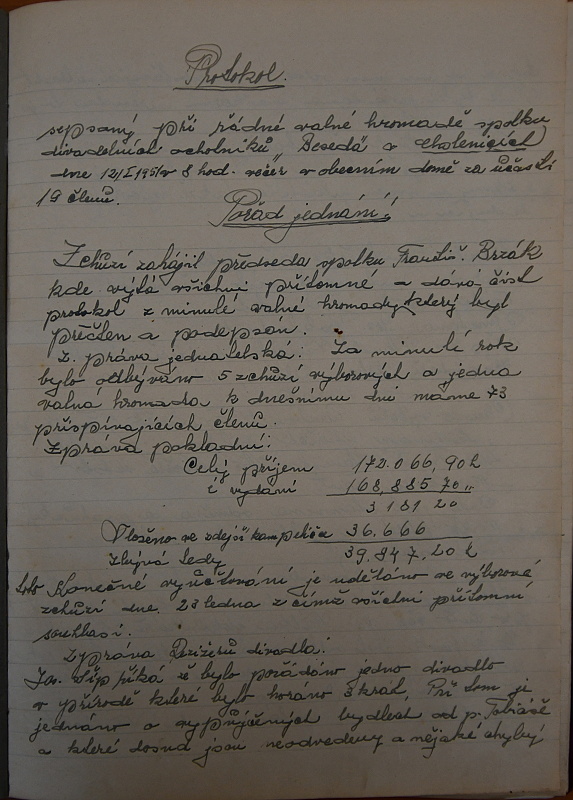 Protokol.
sepsaný při řádné valné hromadě spolku
divadelních ochotníků „Beseda" v Cholenicích
dne 12/I 1951 v 8 hod. večer v obecním domě za účasti
19 členů.
Pořad jednání:
Schůzi zahájil předseda spolku Františ. Brzák
kde vítá všechny přítomné a dává číst
protokol z minulé valné hromady který byl
přečten a podepsán.
Z. práva jednatelská: Za minulý rok
bylo odbýváno 5 schůzí výborových a jedna
valná hromada k dnešnímu dni máme 73
přispívajících členů.
Zpráva pokladní:
Celý příjem 172.066,90 h
i vydání 168,885 70 „
3 181 20
Vloženo ve zdejší kampeličce 36.666
Zbývá tedy 39.847,20 h
Konečné vyúčtování je uděláno ve výborové
schůzi dne 23 ledna z čímž všichni přítomní
souhlasí.
Zpráva režiserů divadla:
Jar. říká že bylo pořádáno jedno divadlo
v přírodě které bylo hráno 3 krát, Při tom je
jednáno o vypůjčených bydlech od p. Tobiáše
a které dosud jsou neodvedeny a nějaké chybý